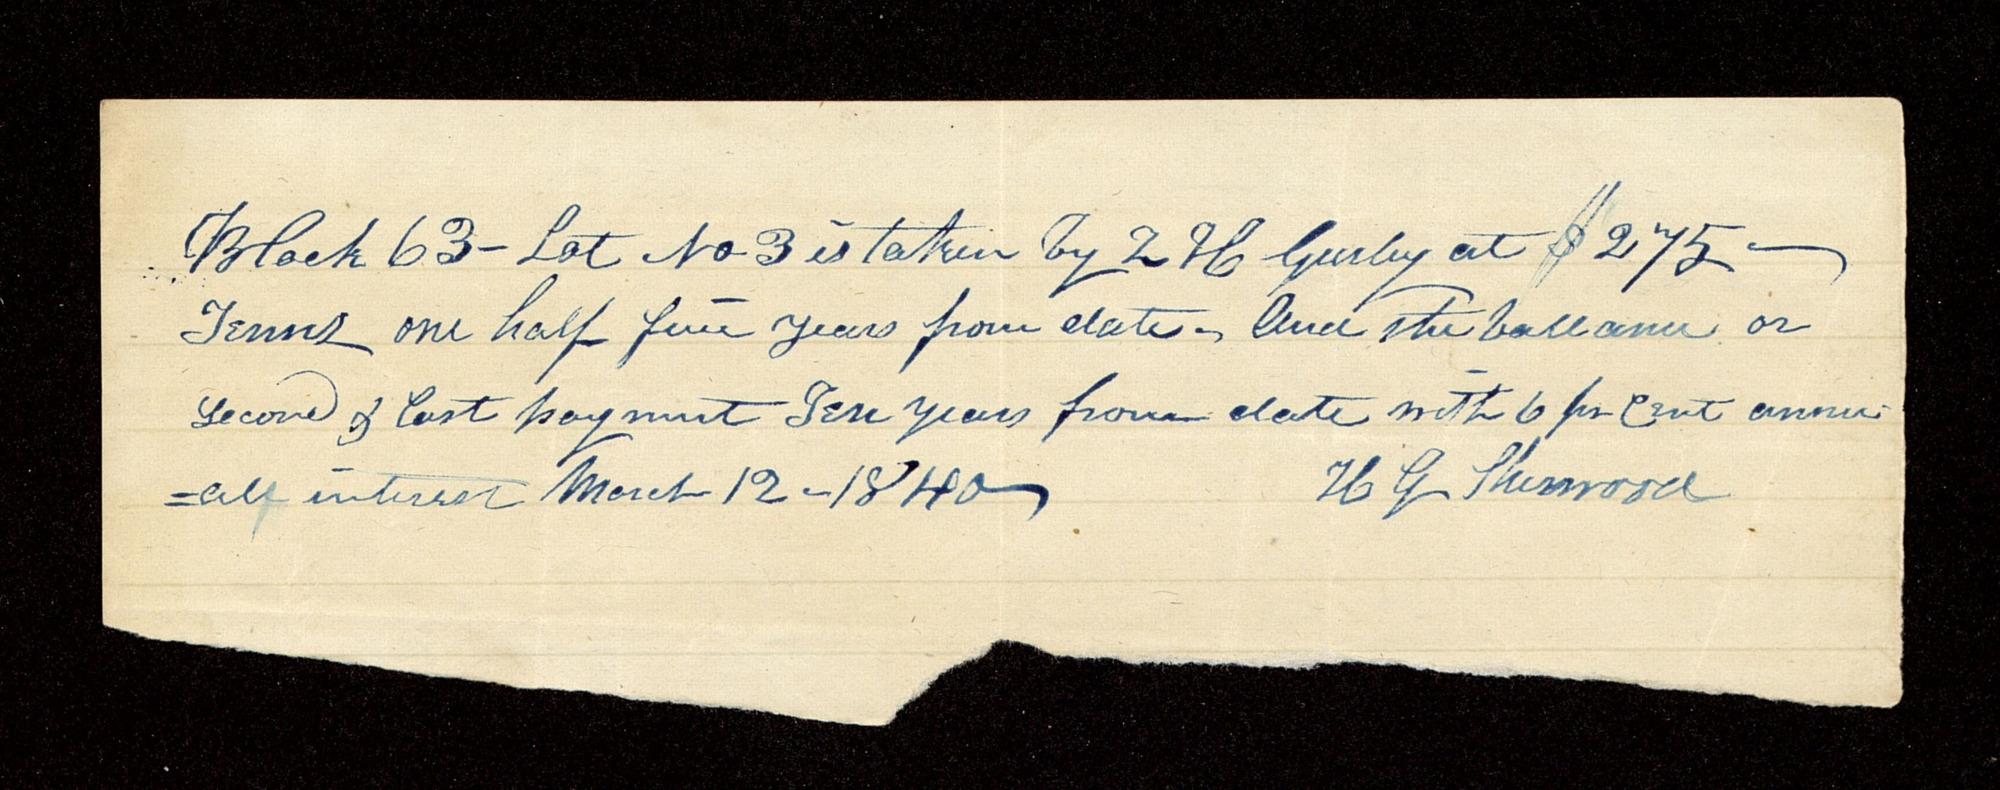 Block 63 - Lot No 3 is taken by Z H Gurley at $275 -
Terms one half five years from date - And the ballance or
second & last payment Ten years from date with 6 pr cent annu
=all interest March 12 - 1840 H G Sherwood